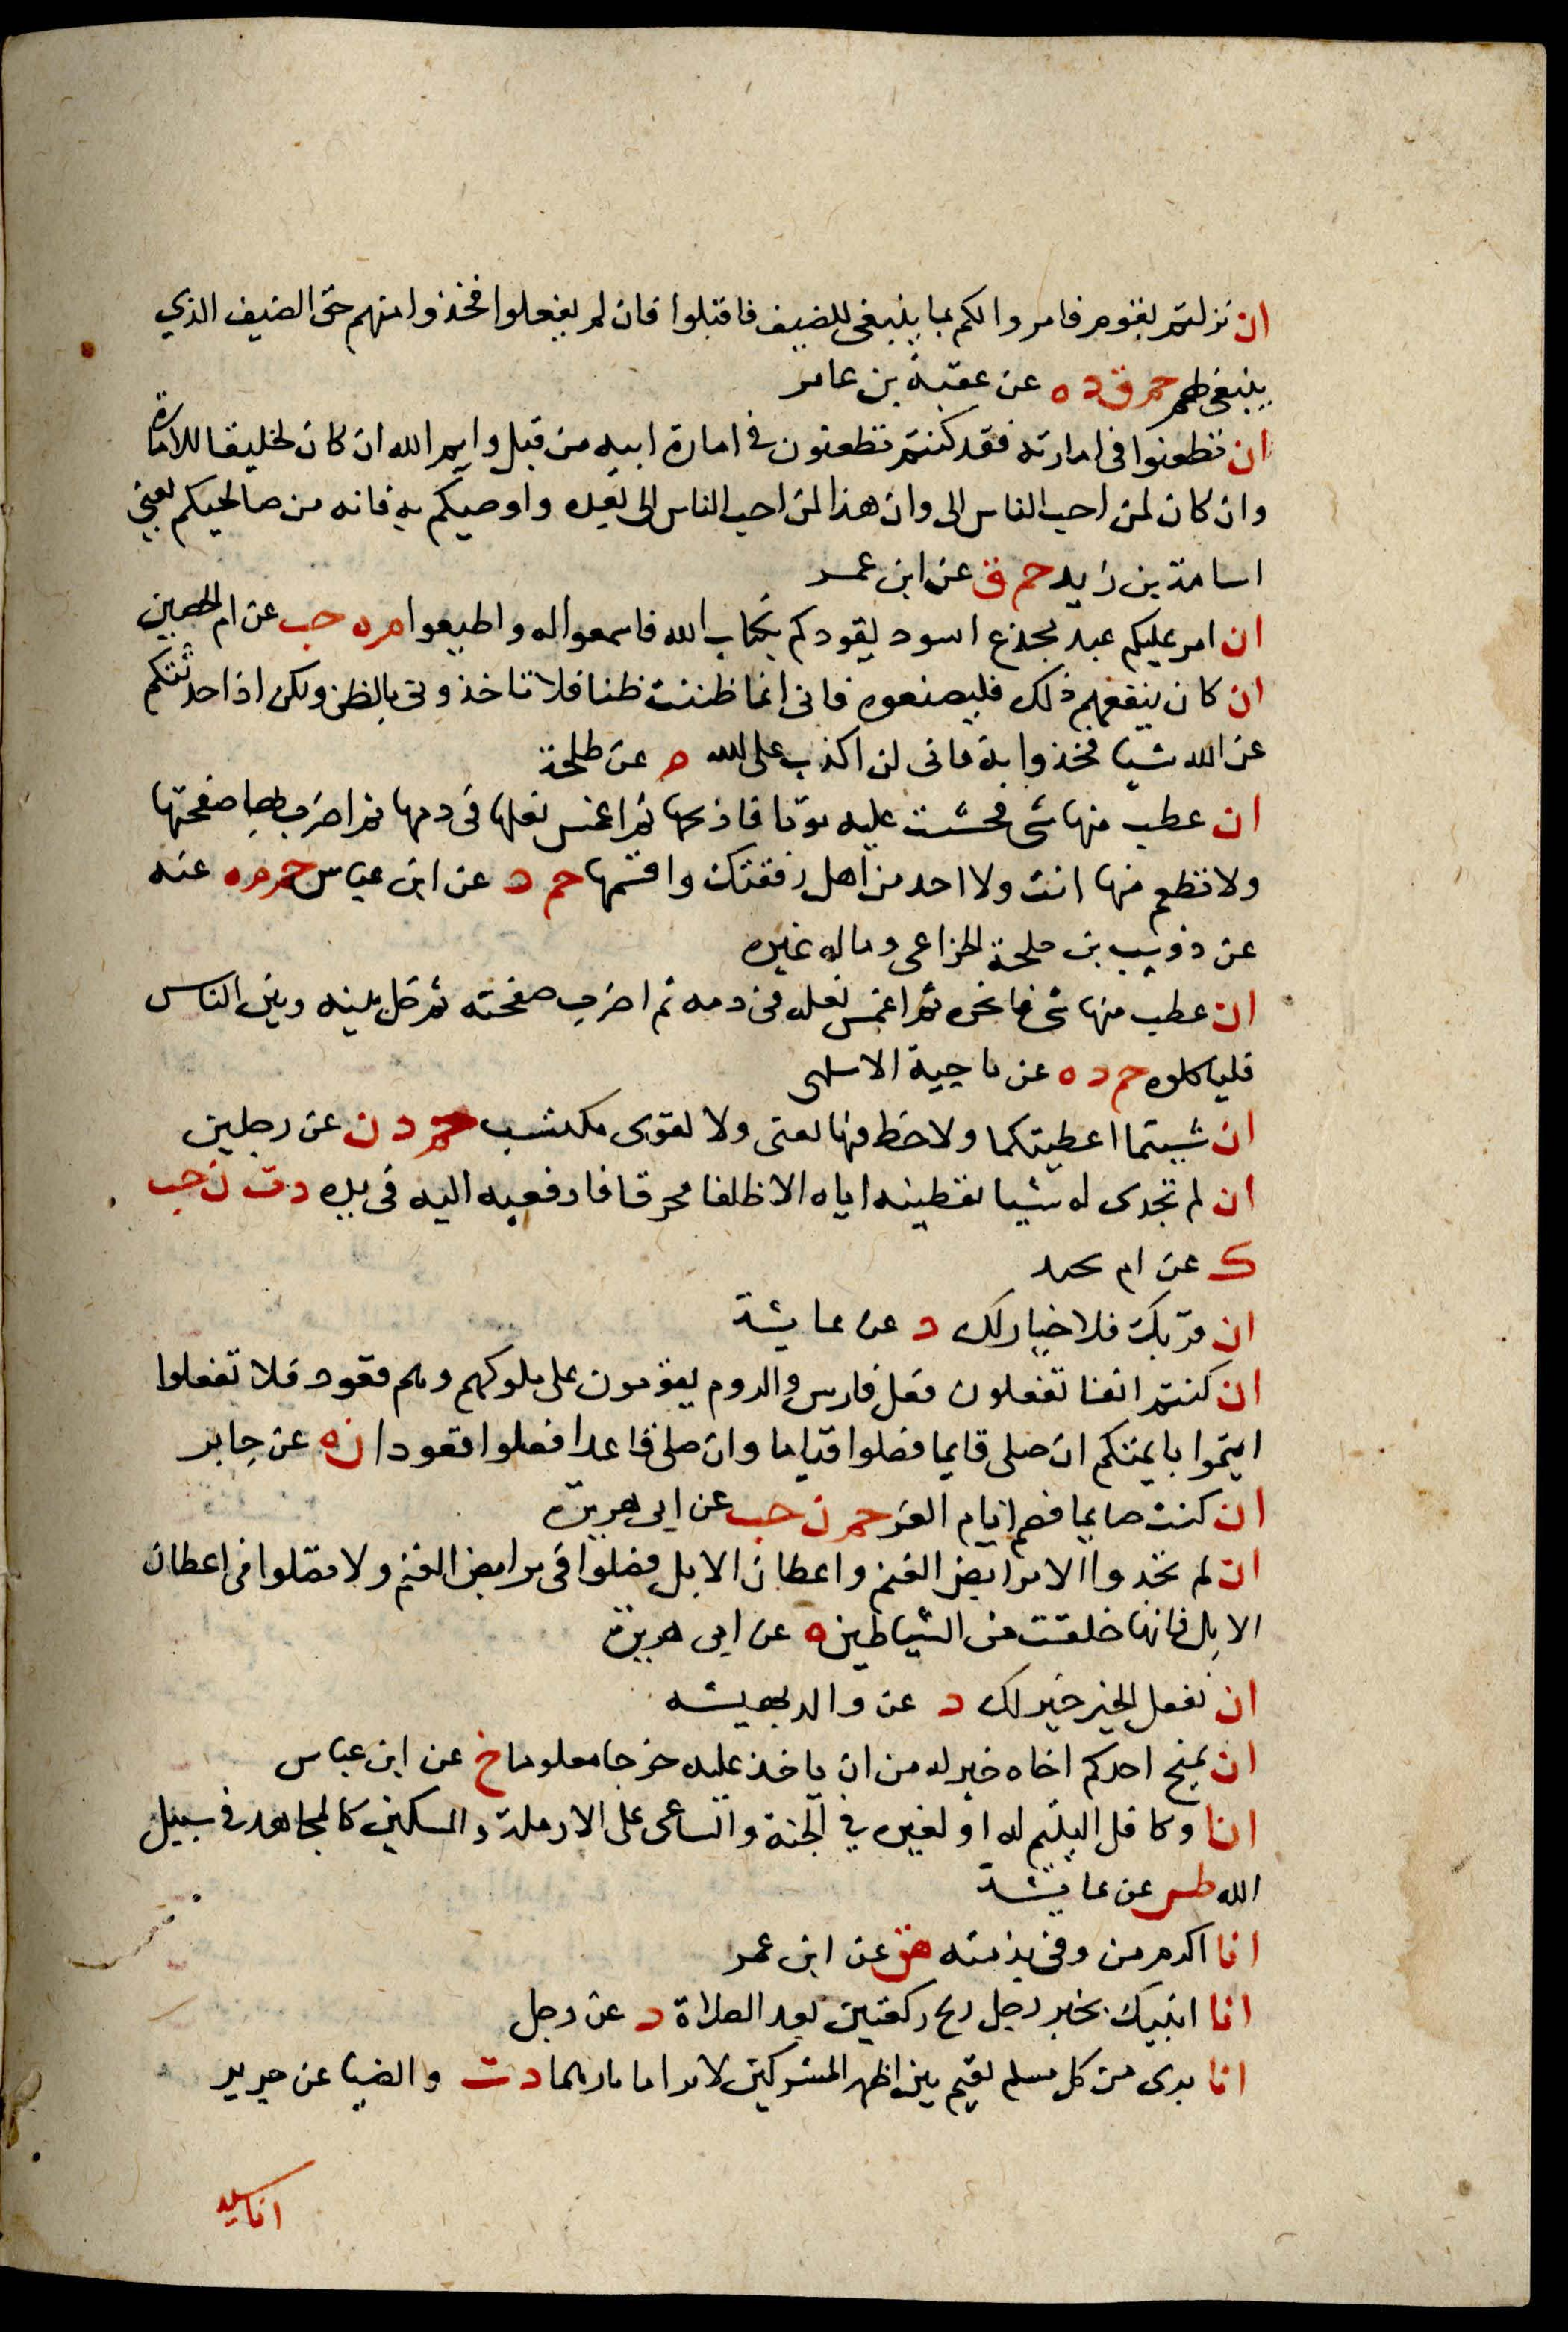 ان نزلتم بقوم فامروا لكم بما ينبغي للضيف فاقبلوا فان لم يفعلوا فخذوا منهم حق الضيف الذي
ينبغي لهم حم ق د ه عن عقبة بن عامر
ان تطعنوا في امارته فقد كنتم تطعنون في امارة ابيه من قبل وايم الله ان كان لخليقا للامارة
وان كان لمن احب الناس الى وان هذا لمن احب الناس الى بعده واوصيكم به فانه من صالحيكم يعني
اسامة بن زيد حم ق عن ابن عمر
ان امر عليكم عبد مجدع اسود يقودكم بكتاب الله فاسمعوا له واطيعوا م ه حب عن ام الحصين
ان كان ينفعهم ذلك فليصنعوه فاني انما ظننت ظنا فلا تاخذوني بالظن ولكن اذا حدثتكم
عن الله شيا فخذوا به فاني لن اكذب على الله م عن طلحة
ان عطب منها شى فخشيت عليه موتا فاذبحها ثم اغمس نعلها في دمها ثم اضرب بها صفحتها
ولا تطعم منها انت ولا احد من اهل رفقتك واقسمها حم د عن ابن عباس حم م ه عنه
عن ذويب بن حلحة الخزاعى وماله غيره
ان عطب منها شى فانحره ثم اغمس نعله في دمه ثم اضرب صفحته ثم خل بينه وبين الناس
فلياكلوه حم د ه عن ناجية الاسلمى
ان شيتما اعطيتكما ولا حظ فيها لغنى ولا لقوى مكتسب حم د ن عن رجلين
ان لم تجدى له شيا تعطينه اياه الا ظلفا محرقا فادفعيه اليه في يده د ت ن حب
ك عن ام بجيد
ان قربك فلا خيار لك د عن عايشة
ان كنتم انفا تفعلون فعل فارس والروم يقومون على ملوكهم وهم قعود فلا تفعلوا
ايتموا بايمتكم ان صلى قايما فصلوا قياما وان صلى قاعدا فصلوا قعودا ن ه عن جابر
ان كنت صايما فصم ايام الغر حم ن حب عن ابى هريرة
ان لم تجدوا الا مرابض الغنم واعطان الابل فصلوا في مرابض الغنم ولا تصلوا في اعطان
الابل فانها خلقت من الشياطين ه عن ابى هريرة
ان تفعل الخير خير لك د عن والد بهيسه
ان يمنح احدكم اخاه خير له من ان ياخذ عليه خرجا معلوما خ عن ابن عباس
انا وكافل اليتيم له او لغيره في الجنة والساعى على الارملة والمسكين كالمجاهد في سبيل
الله طس عن عايشة
انا اكرم من وفى بذمته هق عن ابن عمر
انا انبيك بخير رجل ربح ركعتين بعد الصلاة د عن رجل
انا برى من كل مسلم يقيم بين اظهر المشركين لا تراا ناراهما د ت والضيا عن جرير
انا سيد